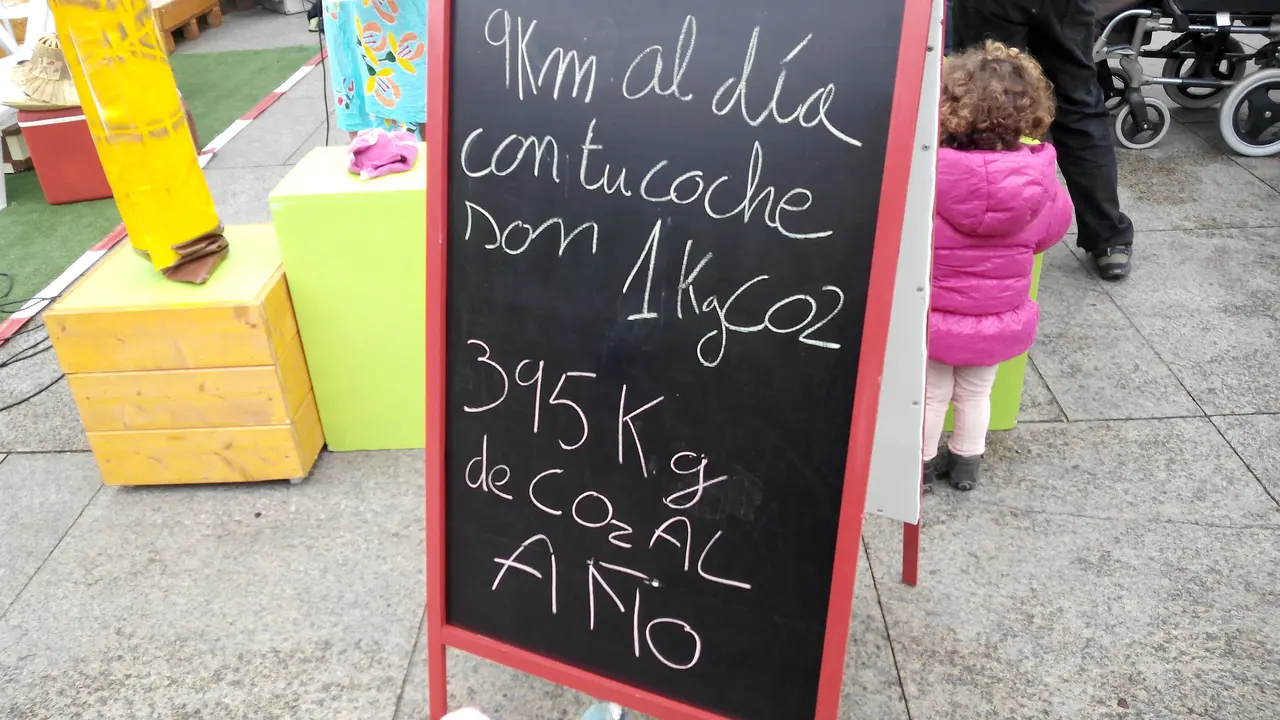 9Km al día
con tu coche
son 1KgCO2
395 Kg
de CO2 AL
AÑO